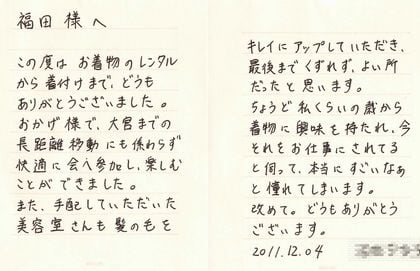 福田 様へ
この度は お着物のレンタル
から着付けまで、どうも
ありがとうございました。
おかげ様で、大宮までの
長距離移動にも係わらず
快適に会へ参加し、楽しむ
ことができました。
また、手配していただいた
美容室さんも髪の毛を
キレイにアップしていただき、
最後までくずれず、よい所
だったと思います。
ちょうど私くらいの歳から
着物に興味を持たれ、今
それをお仕事にされてる
と伺って、本当にすごいなぁ
と憧れてしまいます。
改めて。どうもありがとう
ございます。
2011.12.04